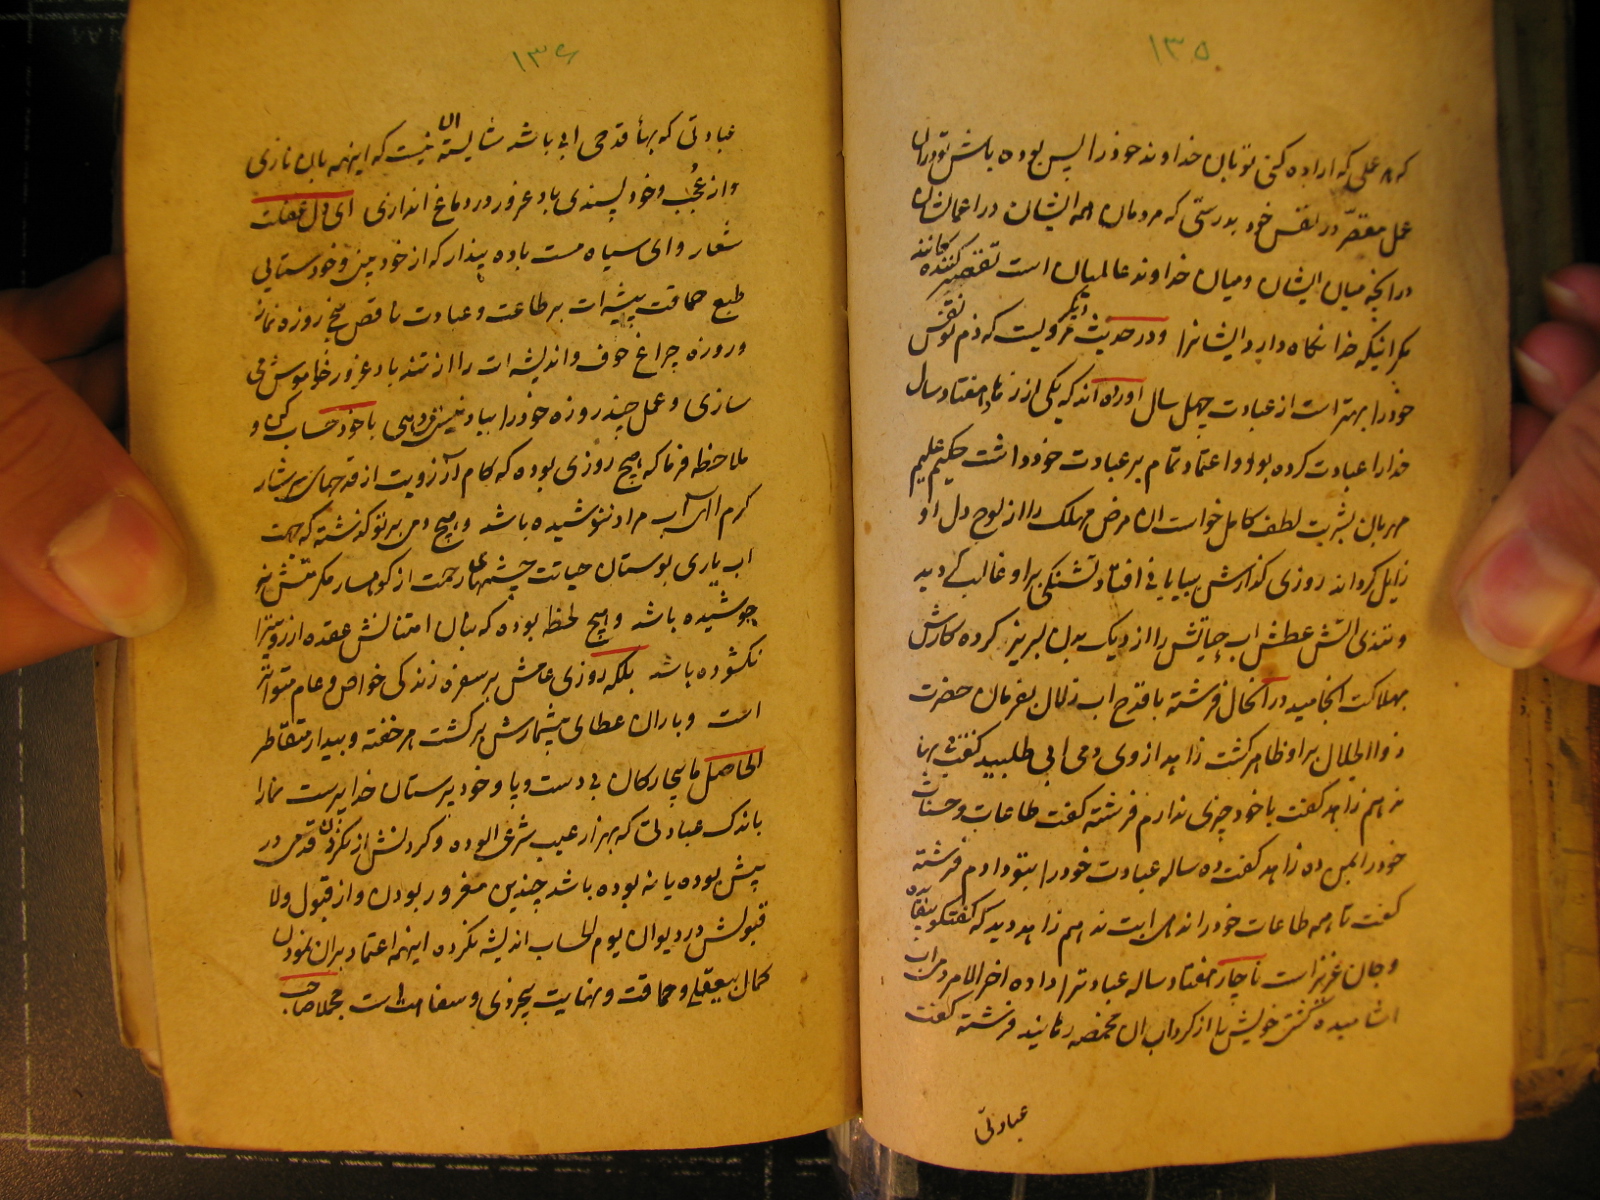 ۱۳۵
که هر عملی که اراده کنی تو بان خداوند خود را پس بوده باش تو در ان
عمل مقصّر در نفس خود بدرستی که مردمان همه ایشان در اعمالشان
در انچه میان ایشان و میان خداوند عالمیان است تقصیر کننده کانند
مکر اینکه خدا نکاه دارد ایشانرا و در حدیث دیکر مرویست که ذم تو نفس
خود را بهتر است از عبادت چهل سال اورده اند که یکی از زهاد هفتاد سال
خدا را عبادت کرده بود و اعتماد تمام بر عبادت خود داشت حکیم علیم
مهربان بشربت لطف کامل خواست ان مرض مهلک را از لوح دل او
زایل کرداند روزی کذارش ببیابانی افتاد تشنکی بر او غالب کردید
و تندی اتش عطش اب حیاتش را از دیک بدن لبریز کرده کارش
بهلاکت انجامید در انحال فرشته با قدح اب زلال بفرمان حضرت
ذو الجلال بر او ظاهر کشت زاهد از وی دمی ابی طلبید کفت بی بها
ندهم زاهد کفت با خود چیزی ندارم فرشته کفت طاعات و حسنات
خود را بمن ده زاهد کفت ده ساله عبادت خود را بتو دادم فرشته
کفت تا همه طاعات خود را ندهی ابت ندهم زاهد دید که کفتکو بیفایده
و جان عزیز است ناچار هفتاد ساله عبادترا داده اخر الامر دمی اب
اشامیده کشتی خویش را از کرداب ان مخمصه رهانید فرشته کفت
عبادتی
۱۳۶
عبادتی که بهاء قدحی ابی باشد شایسته ان نیست که اینهمه بان نازی
و از عُجب و خود پسندی باد غرور در دماغ اندازی ای دل غفلت
شعار و ای سیاه مست باده پندار که از خود بینی و خودستایی
طبع حماقت پیشه ات بر طاعت و عبادت ناقص پنج روزه نماز
و روزه چراغ خوف و اندیشه ات را از تند باد غرور خاموش می
سازی و عمل چند روزه خود را بباد نیستی میدهی با خود حساب کن و
ملاحظه فرما که هیچ روزی بوده که کام آرزویت از قدحهای سرشار
کرم الهی آب مراد ننوشیده باشد و هیچ دمی بر تو کذشته که جهت
اب یاری بوستان حیاتت چشمهای رحمت از کوهسار مکرمتش نـ
جوشیده باشد و هیچ لحظه بوده که بنان امتنانش عقده ارزویترا
نکشوده باشد بلکه روزی عامش بر سفره زندکی خواص و عام متواتر
است و باران عطای بیشمارش بر کشت هر خفته و بیدار متقاطر
الحاصل ما بیچارکان بی دست و پا و خود پرستان خدا پرست نما را
باندک عبادتی که بهزار عیب شرعی الوده و کردنش از نکردن قدمی در
پیش بوده یا نبوده باشد چندین مغرور بودن و از قبول و لا
قبولش در دیوان یوم الحساب اندیشه نکرده اینهمه اعتماد بران نمودن
کمال بیعقلی و حماقت و نهایت بیخردی و سفاهت است مجملا صاحب